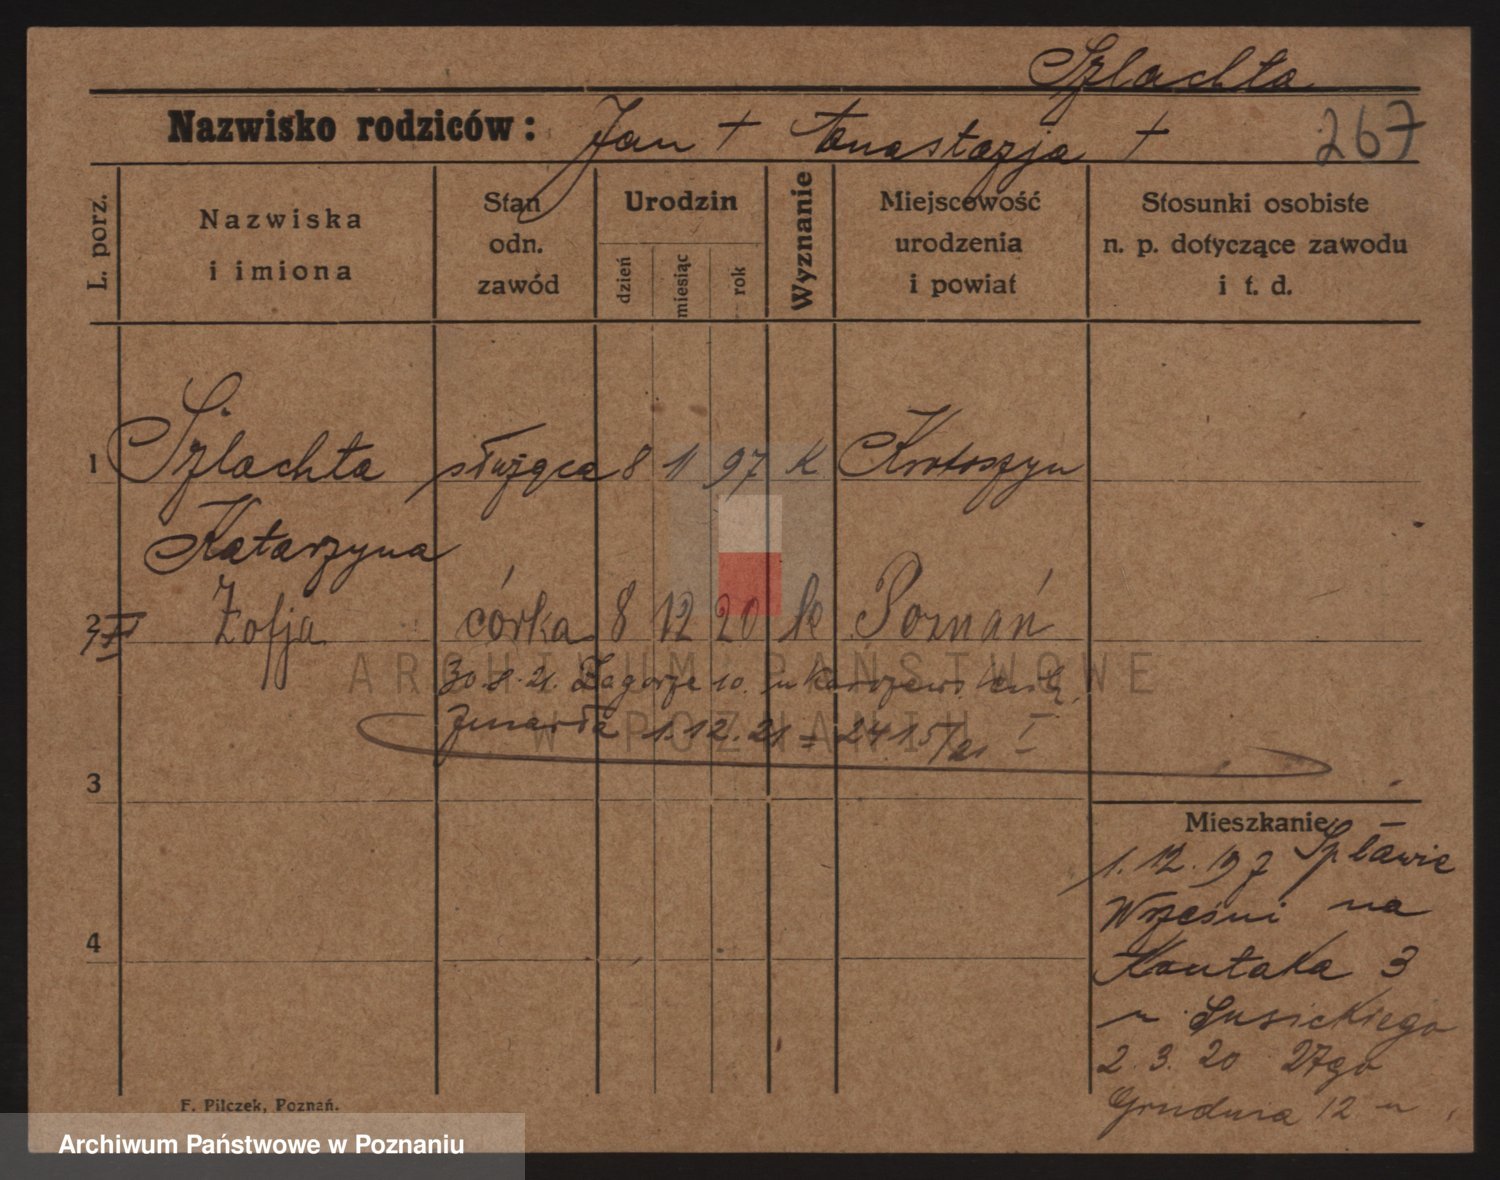 Szlachta
Nazwisko rodziców: Jan + Anastazja +
267
L. porz.
Nazwiska i imiona
Stan odn. zawód
Urodzin
dzień
miesiąc
rok
Wyznanie
Miejscowość urodzenia i powiat
Stosunki osobiste n. p. dotyczące zawodu i t. d.
1 Szlachta służąca 8 11 97 K Krotoszyn
Katarzyna
2 Zofja córka 8 12 20 k Poznań
30.8.21. Zagórze 10. u
Zmarła 1.12.21 = 2415/21 I
3
4
Mieszkanie
1.12.19 z Spławie
Wrześni na
Kantaka 3
u Lusickiego
2.3.20 27go
Grudnia 12 u
F. Pilczek, Poznań.
ARCHIWUM PAŃSTWOWE
W POZNANIU
Archiwum Państwowe w Poznaniu